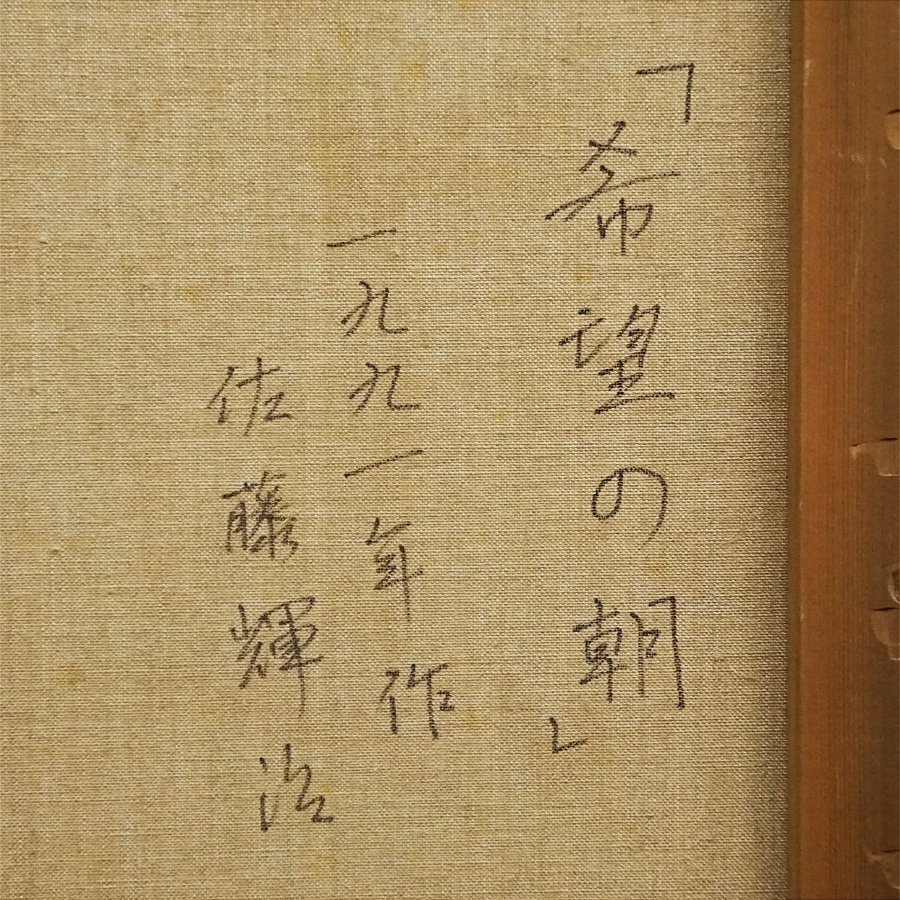 「希望の朝」
一九九一年作
佐藤輝治